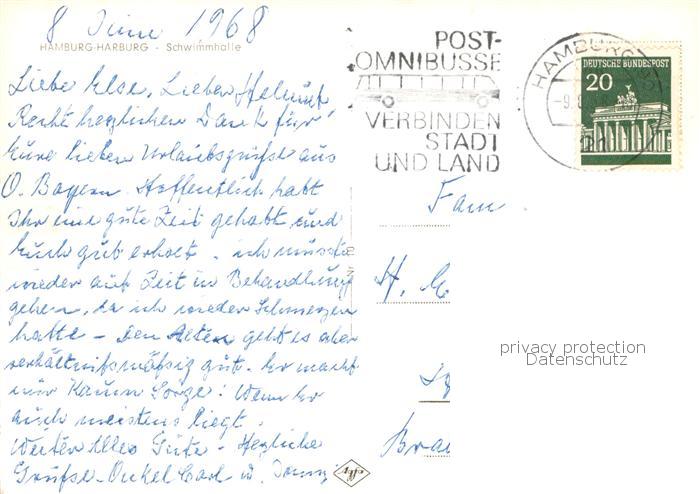 8 Juni 1968
HAMBURG-HARBURG - Schwimmhalle
Liebe Else, Lieber Helmut
Recht herzlichen Dank für
Eure lieben Urlaubsgrüße aus
O. Bayern. Hoffentlich habt
Ihr eine gute Zeit gehabt und
Euch gut erholt. ich musste
wieder auf Zeit in Behandlung
gehen, da ich wieder Schmerzen
hatte - Den Alten geht es aber
verhältnismäßig gut. Er macht
mir kaum Sorge! Wenn Er
auch meistens liegt.
Weiter Alles Gute - Herzliche
Grüße Onkel Carl u.
POST-
OMNIBUSSE
VERBINDEN
STADT
UND LAND
HAMBURG
-9.
DEUTSCHE BUNDESPOST
20
Fam
H.
Bra
Agfa
privacy protection
Datenschutz